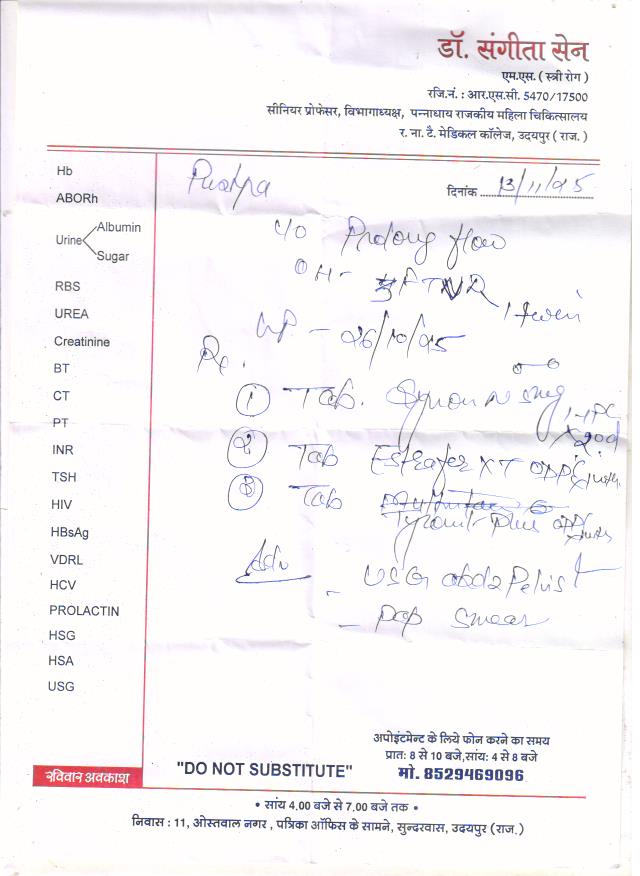 डॉ. संगीता सेन
एम.एस. ( स्त्री रोग )
रजि.नं. : आर.एस.सी. 5470/17500
सीनियर प्रोफेसर, विभागाध्यक्ष, पन्नाधाय राजकीय महिला चिकित्सालय
र. ना. टै. मेडिकल कॉलेज, उदयपुर ( राज. )
Hb
ABORh
Urine Albumin
Sugar
RBS
UREA
Creatinine
BT
CT
PT
INR
TSH
HIV
HBsAg
VDRL
HCV
PROLACTIN
HSG
HSA
USG
Pushpa
दिनांक 13/11/25
c/o Prolong flow
OH - FTNVD
1 twin
LMP - 26/10/25
Rx.
① Tab. N 5mg
② Tab XT
③ Tab
Plus
Adv
- USG abd & Pelvis
- Pap smear
रविवार अवकाश
"DO NOT SUBSTITUTE"
अपोइंटमेन्ट के लिये फोन करने का समय
प्रातः 8 से 10 बजे,सांय: 4 से 8 बजे
मो. 8529469096
• सांय 4.00 बजे से 7.00 बजे तक •
निवास : 11, ओस्तवाल नगर , पत्रिका ऑफिस के सामने, सुन्दरवास, उदयपुर (राज.)